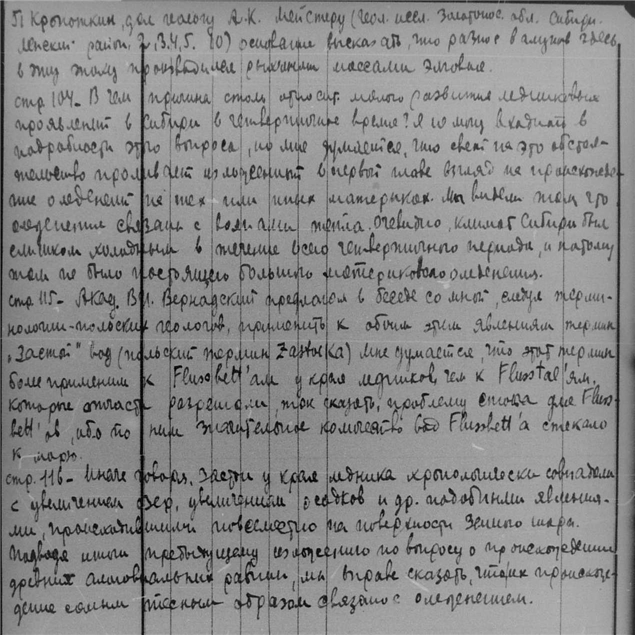 П. Кропоткин, дал геологу А.К. Мейстеру (Геол. иссл. Золотонос. обл. Сибири.
Ленский район, 2, 3, 4, 5. 10) основание высказать, что разнос валунов здесь
в эту эпоху производился рыхлыми массами
стр 104 – В чем причина столь относит. малого развития ледниковых
проявлений в Сибири в четвертичное время? Я не могу входить в
подробности этого вопроса, но мне думается, что свет на это обстоя-
тельство проливает изложенный в первой главе взгляд на происхожде-
ние оледенений на тех или иных материках. Мы видели там, что
оледенения связаны с волнами тепла. Очевидно, климат Сибири был
слишком холодным в течение всего четвертичного периода, и потому
там не было настоящего большого материкового оледенения.
стр 115 – Акад. В.И. Вернадский предлагал в беседе со мной, следуя терми-
нологии польских геологов, применить к обоим этим явлениям термин
„Застой" вод (польский термин Zastoika) Мне думается, что этот термин
более применим к Flussbett'ам у края ледников, чем к Flusstal'ям,
которые отчасти разрешали, так сказать, проблему стока для Fluss-
bett'ов, ибо по ним значительное количество вод Flussbett'а стекало
к морю.
стр. 116 – Иначе говоря, застой у края ледника хронологически совпадал
с увеличением озер, увеличением осадков и др. подобными явления-
ми, происходившими повсеместно на поверхности Земного шара.
Подводя итоги предыдущему изложению по вопросу о происхождении
древних аллювиальных равнин, мы вправе сказать, что их происхож-
дение самым тесным образом связано с оледенением.